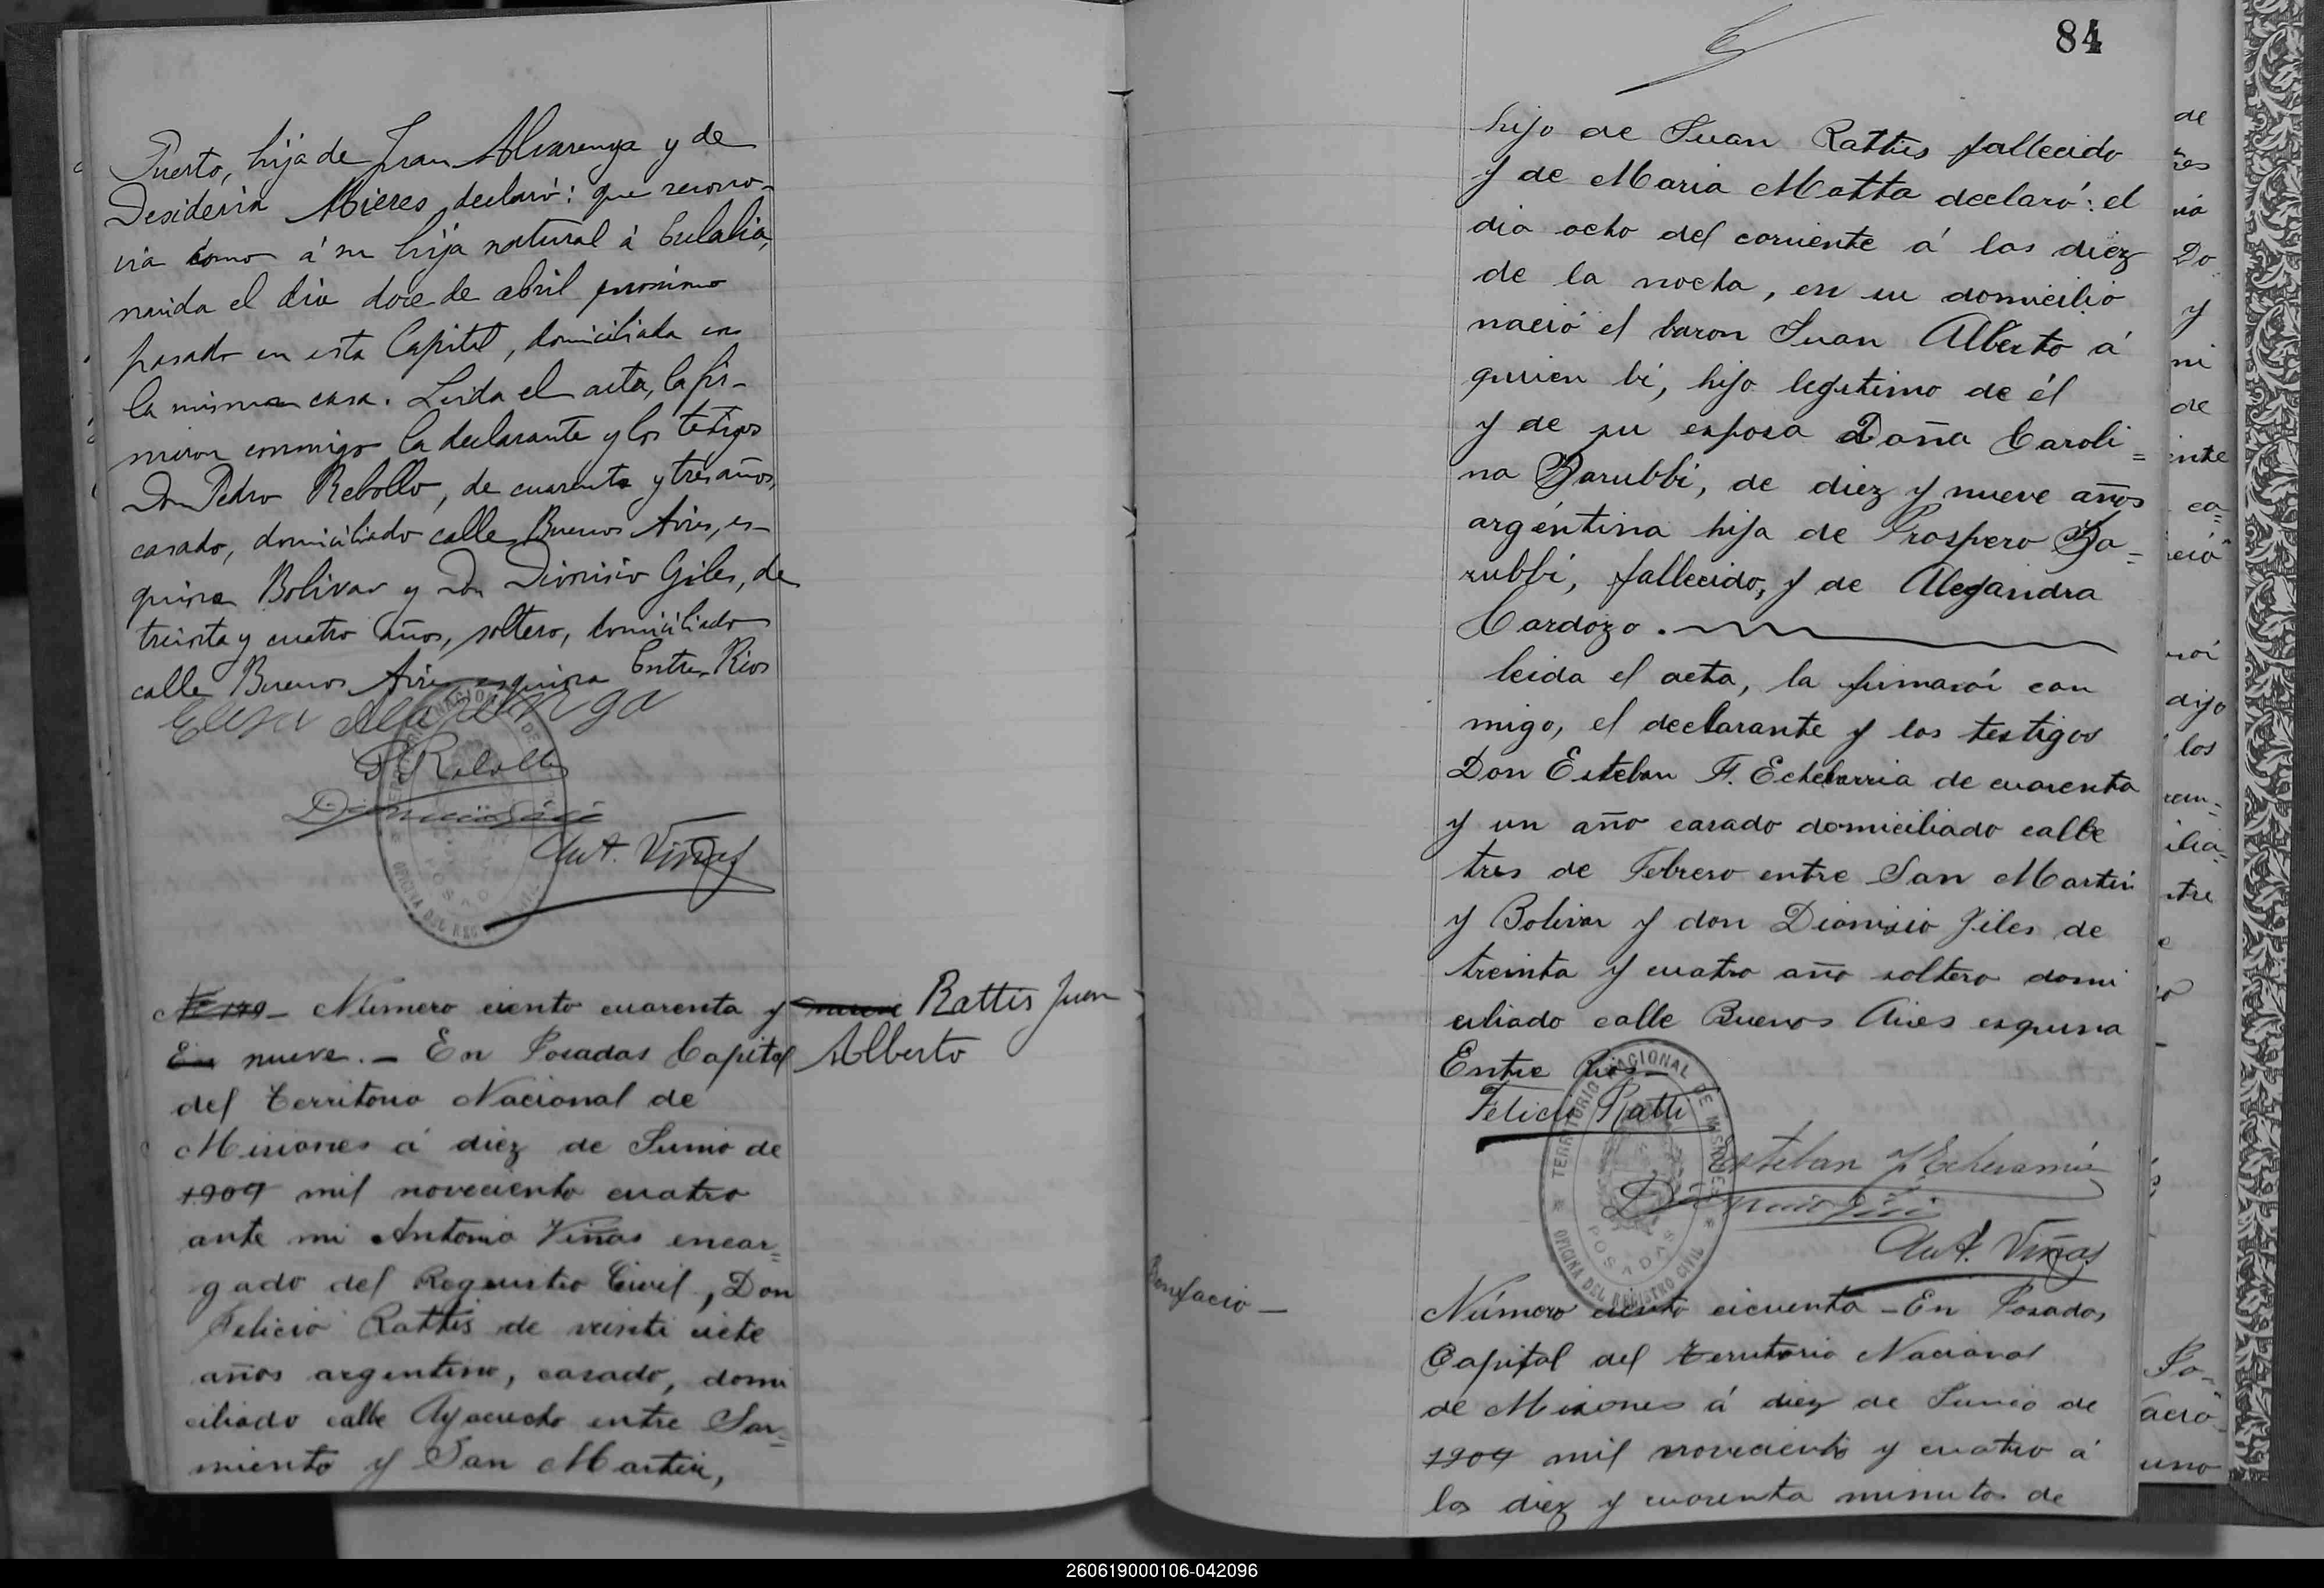 Puerto, hija de Juan Alvarenga y de
Desideria Mieres declaró: que recono-
cia como á su hija natural á Eulalia,
nacida el dia doce de abril proximo
pasado en esta Capital, domiciliada en
la misma casa. Leida el acta, la fir-
maron conmigo la declarante y los testigos
Don Pedro Rebollo, de cuarenta y tres años,
casado, domiciliado calle Buenos Aires, es-
quina Bolivar y Don Dionisio Giles, de
treinta y cuatro años, soltero, domiciliado
calle Buenos Aires esquina Entre Rios
Elisa Alvarenga
P. Rebollo
Dionisio Giles
Ant. Viñas
Nº 149 - Número ciento cuarenta y nueve
En nueve. - En Posadas Capital
del Territorio Nacional de
Misiones á diez de Junio de
1904 mil noveciento cuatro
ante mi Antonio Viñas encar=
gado del Reguistro Civil, Don
Felicio Rattis de veinti ciete
años argentino, casado, domi
ciliado calle Ayacucho entre Sar=
miento y San Martin,
Rattis Juan
Alberto
84
hijo de Juan Rattis fallecido
y de Maria Motta declaró: el
dia ocho del corriente á las diez
de la nocha, en su domicilio
nació el baron Juan Alberto á
quien bi, hijo legitimo de él
y de su esposa Doña Caroli=
na Barubbi, de diez y nueve años
argentina hija de Prospero Ba=
rubbi, fallecido, y de Alejandra
Cardozo.
leida el acta, la firmaroi con
migo, el declarante y los testigos
Don Esteban F. Echebarria de cuarenta
y un año casado domiciliado calle
tres de Febrero entre San Martin
y Bolivar y don Dionisio Giles de
treinta y cuatro año soltero domi
ciliado calle Buenos Aires esquina
Entre Rios -
Felicio Ratti
Esteban F. Echevarria
Dionisio Giles
Ant. Viñas
TERRITORIO NACIONAL DE MISIONES
POSADAS
OFICINA DEL REGISTRO CIVIL
Bonifacio -
Número ciento cicuenta - En Posadas,
Capital del Territorio Nacional
de Misiones á diez de Junio de
1904 mil noveciento y cuatro á
las diez y cuarenta minutos de
260619000106-042096